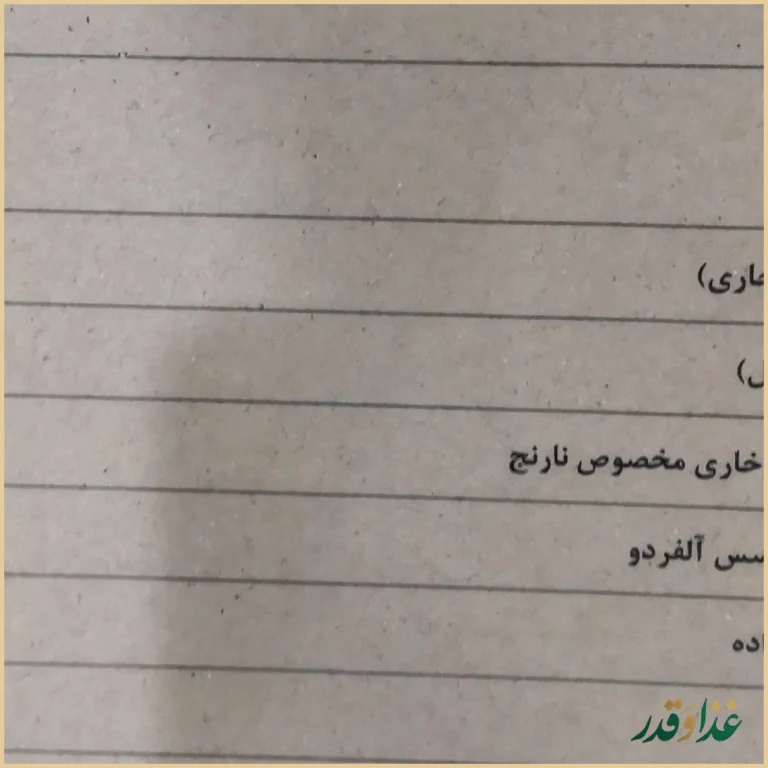 خاری)
ل)
خاری مخصوص نارنج
سس آلفردو
اده
غذا و قدر